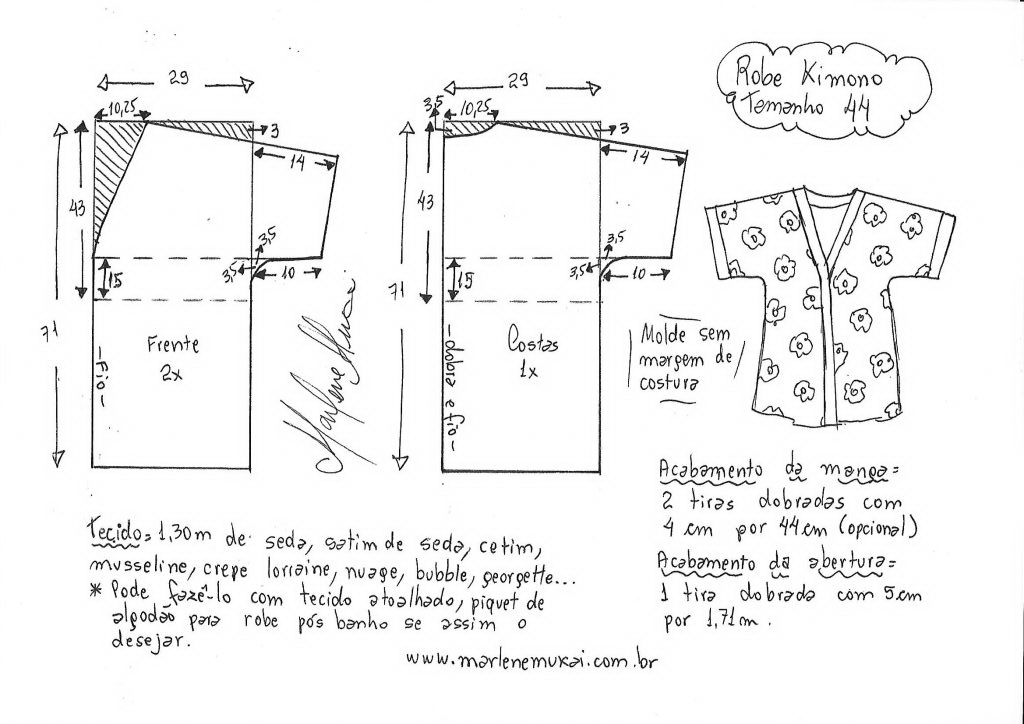 Robe Kimono
Tamanho 44
29
10,25
3
14
43
3,5
3,5
10
15
71
Frente
2x
-Fio-
Marlene Mukai
29
3,5
10,25
3
14
43
3,5
3,5
10
15
71
Costas
1x
-dobra e fio-
Molde sem
margem de
costura
Acabamento da manga=
2 tiras dobradas com
4 cm por 44cm (opcional)
Acabamento da abertura=
1 tira dobrada com 5cm
por 1,71m.
Tecido= 1,30m de seda, satim de seda, cetim,
musseline, crepe lorraine, nuage, bubble, georgette...
* Pode fazê-lo com tecido atoalhado, piquet de
algodão para robe pós banho se assim o
desejar.
www.marlenemukai.com.br